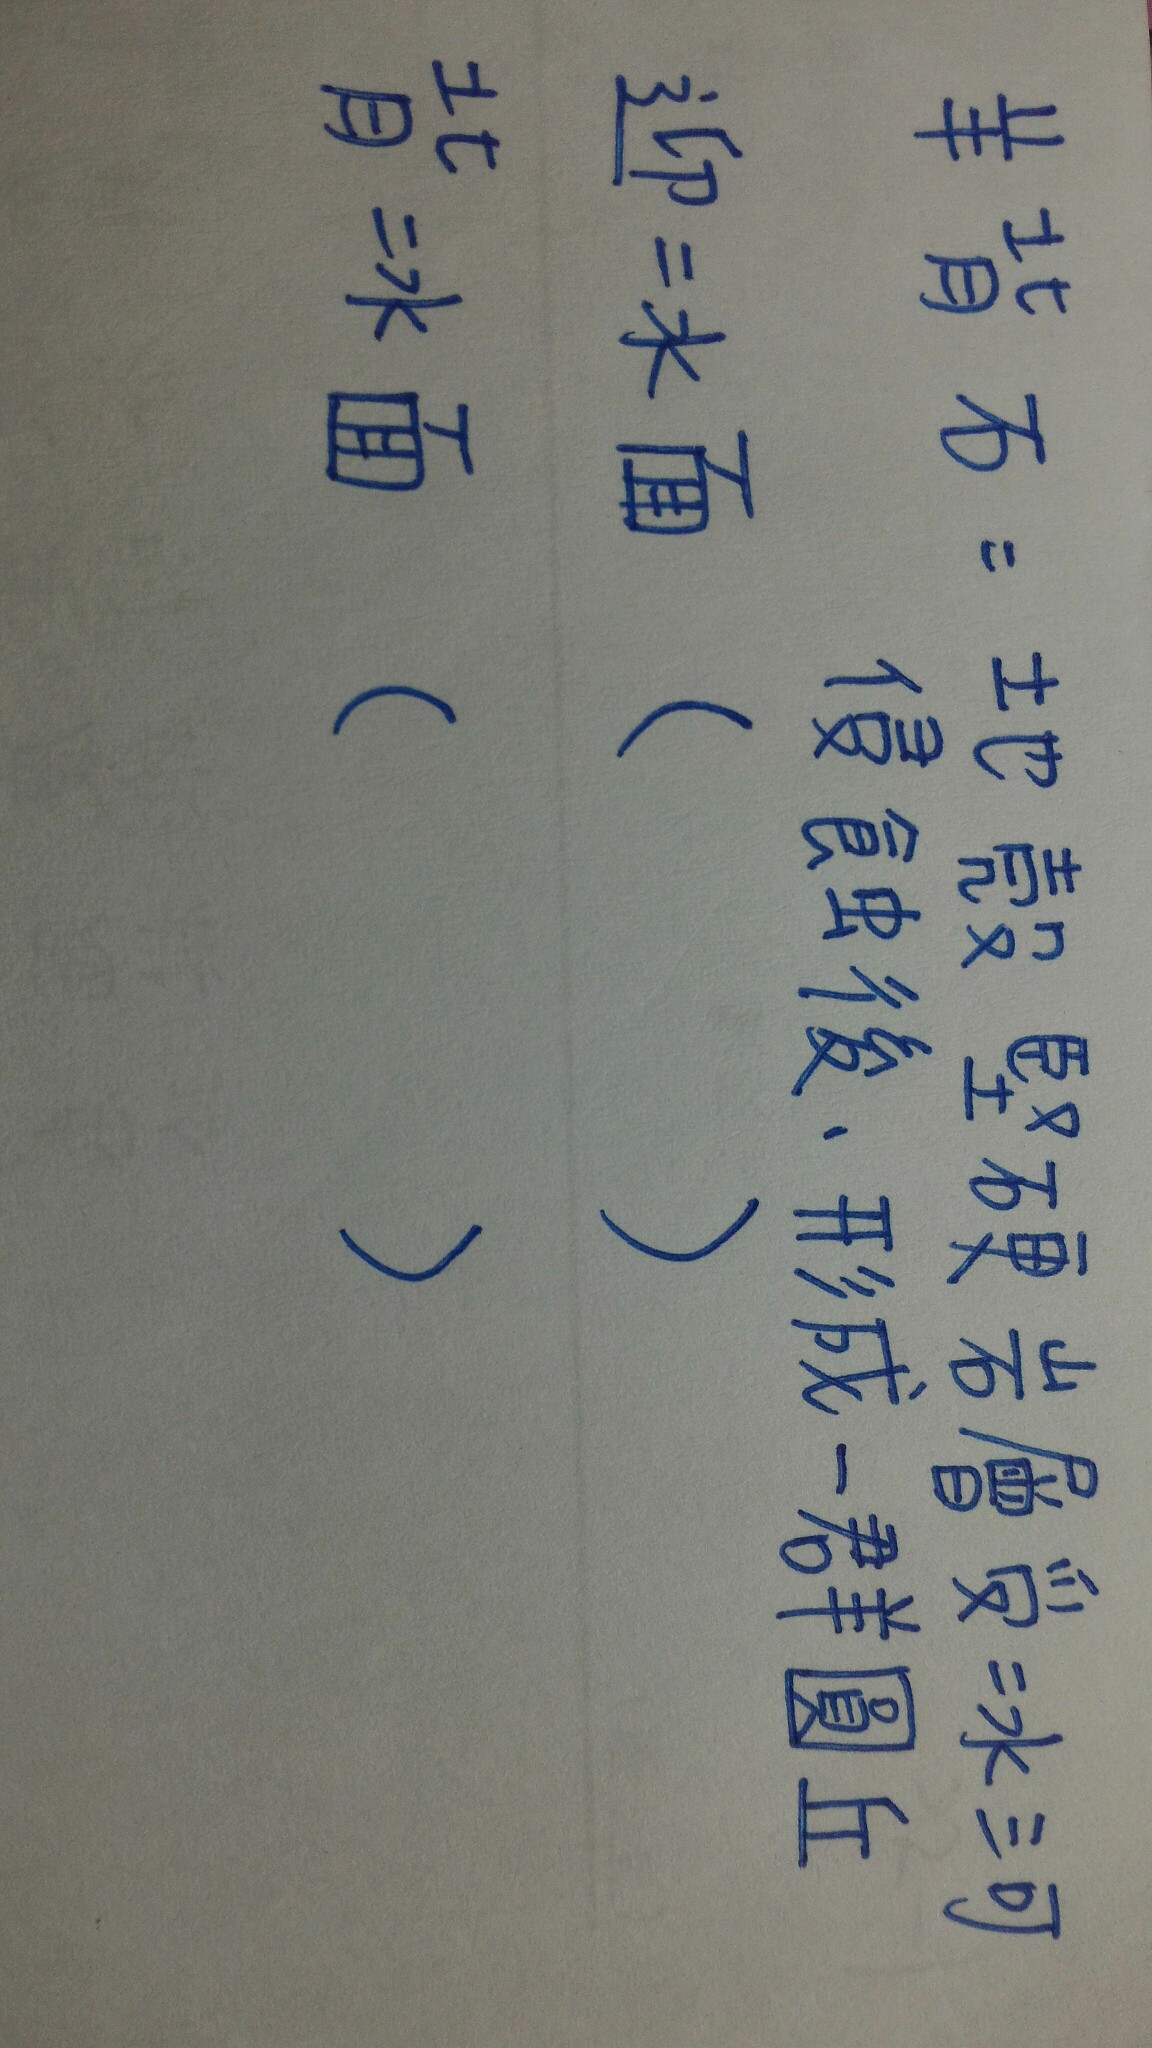 羊背石=地殼堅硬岩層受冰河
侵蝕後、形成一群圓丘
迎冰面(　　　)
背冰面(　　　)